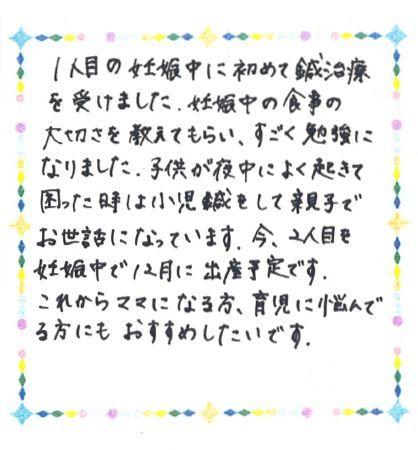 1人目の妊娠中に初めて鍼治療
を受けました．妊娠中の食事の
大切さを教えてもらい、すごく勉強に
なりました．子供が夜中によく起きて
困った時は小児鍼をして親子で
お世話になっています．今、2人目を
妊娠中で12月に出産予定です．
これからママになる方、育児に悩んで
る方にもおすすめしたいです．